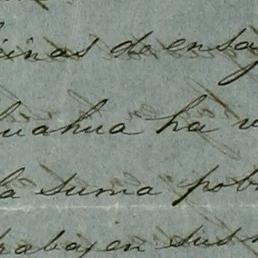 cinas de ensay
huahua ha v
la suma pob
trabajen sus